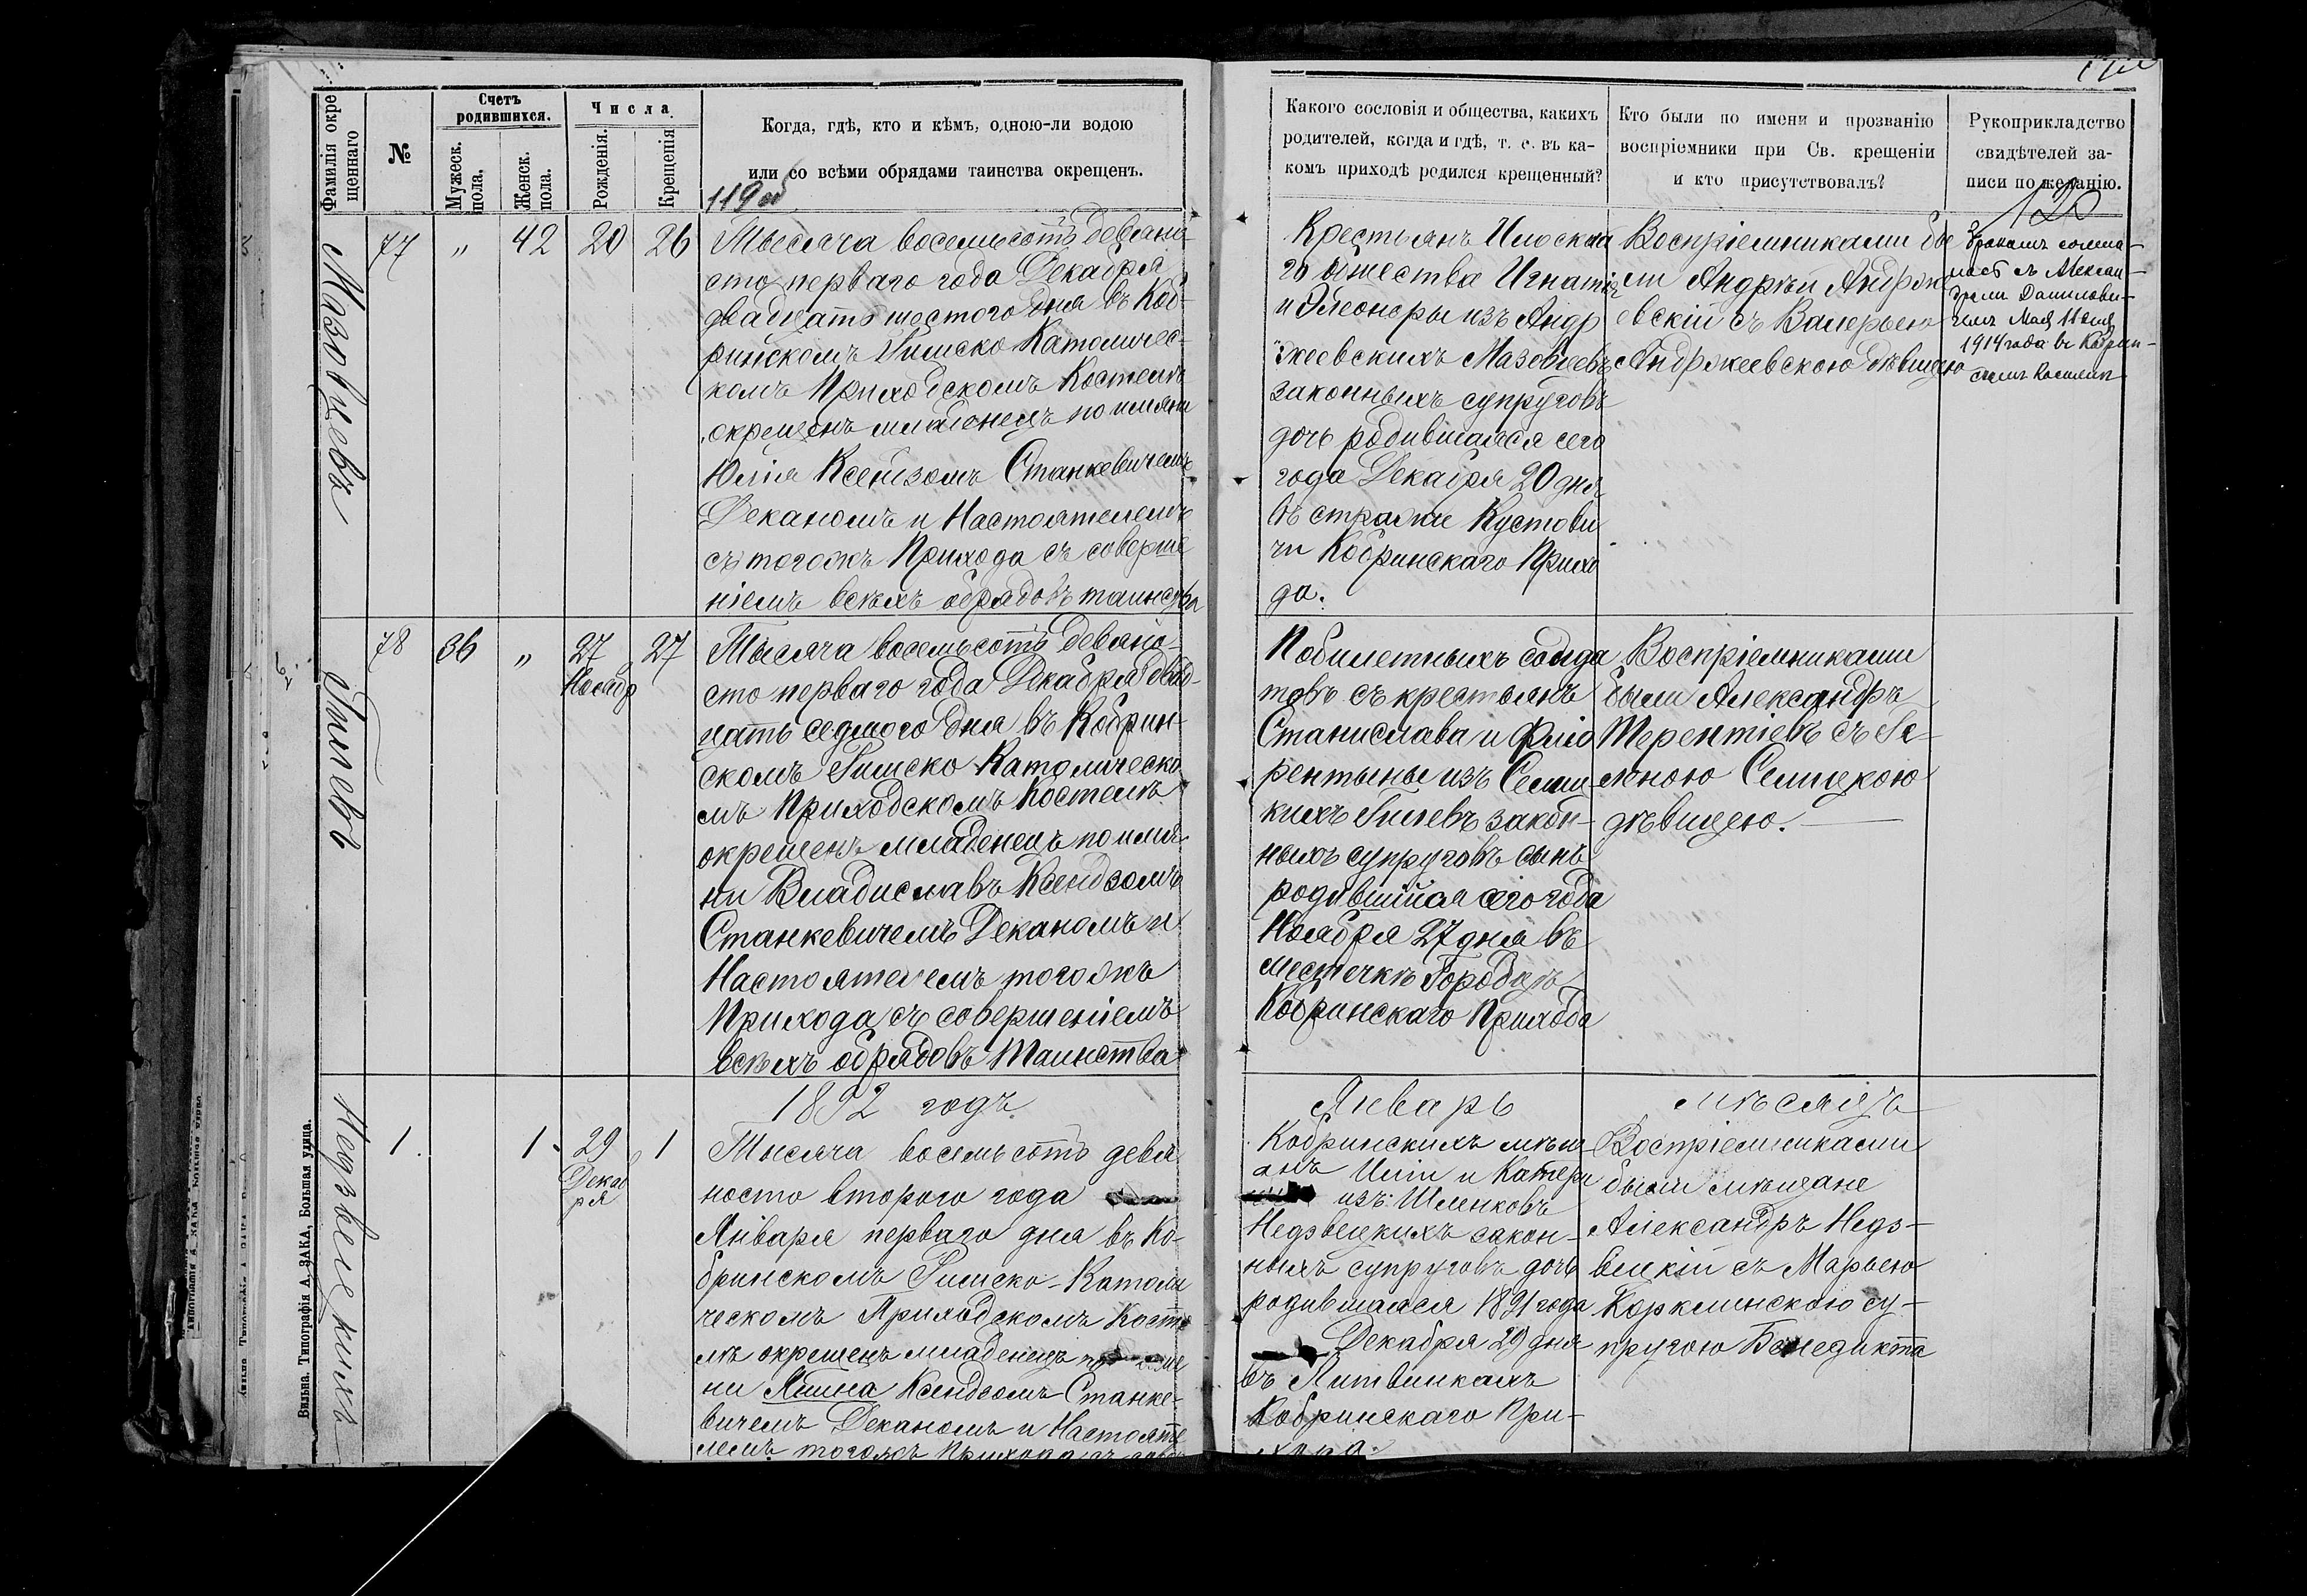 Фамилія окре
щеннаго
№
Счетъ
родившихся.
Мужеск.
пола.
Женск.
пола.
Числа
Рожденія.
Крещенія
Когда, гдѣ, кто и кѣмъ, одною-ли водою
или со всѣми обрядами таинства окрещенъ.
119 об
Мазовцевъ
77
"
42
20
26
Тысяча восемьсотъ девяно-
сто перваго года Декабря
двадцать шестого дня въ Коб-
ринскомъ Римско Католичес-
комъ Приходскомъ Костелѣ
окрещенъ младенецъ по имяни
Юлія Ксендзомъ Станкевичемъ
Деканомъ и Настоятелемъ
съ тогожъ Прихода съ соверше
ніемъ всѣхъ обрядовъ таинства
78
36
"
27
Ноябр
27
Тысяча восемьсотъ девяно-
сто перваго года Декабря двад-
цать седмого дня въ Кобрин-
скомъ Римско Католическо
мъ Приходскомъ Костелѣ
окрещенъ младенецъ по имя-
ни Владиславъ Ксендзомъ
Станкевичемъ Деканомъ и
Настоятелемъ тогожъ
Прихода съ совершеніемъ
всѣхъ обрядовъ Таинства
1892 годъ
Недзвецкихъ
1.
1
29
Декаб
ря
1
Тысяча восемьсотъ девя
носто второго года
Января перваго дня въ Ко-
бринскомъ Римско-Католи
ческомъ Приходскомъ Косте
лѣ окрещенъ младенецъ по име
ни Ксендзомъ Станке-
вичемъ Деканомъ и Настояте
лемъ тогожъ Прихода съ
Вильна. Типографія А. ЗАКА, Большая улица.
Какого сословія и общества, какихъ
родителей, когда и гдѣ, т. е. въ ка-
комъ приходѣ родился крещенный?
Кто были по имени и прозванію
воспріемники при Св. крещеніи
и кто присутствовалъ?
Рукоприкладство
свидѣтелей за-
писи по желанію.
120
Крестьянъ Илоскаа
го общества Игнатія
и Элеоноры изъ Андр
жеевскихъ Мазовцевъ
законныхъ супруговъ
дочь родившаяся сего
года Декабря 20 дня
въ стражи Кустови
чи Кобринскаго Прихо
да.
Воспріемниками бы
ли Андрей Андрже
евскій съ Валерьею
Андржеевскою дѣвицею
бракомъ сочета-
лась съ Алексан-
дромъ Данилови-
чемъ Мая 11 дня
1914 года въ Кобрин-
скомъ Костелѣ
Побилетныхъ солда
товъ съ крестьянъ
Станислава и Фліо
рентыны изъ Семиц
кихъ закон-
ныхъ супруговъ сынъ
родившійся сего года
Ноября 27 дня въ
местечкѣ Городцѣ
Кобринскаго Прихода
Воспріемниками
были Александръ
Терентіевъ съ Ге-
леною Семицкою
дѣвицею.
Январь
мѣсяцъ
Кобринскихъ мѣщ
анъ и Катери
изъ Шленковъ
Недзвецкихъ закон-
ныхъ супруговъ дочь
родившаяся 1891 года
Декабря 29 дня
въ Литвинкахъ
Кобринскаго При-
хода.
Воспріемниками
были мѣщане
Александръ Недз-
вецкій съ Марьею
Корклинскою су-
пругою Бенедикта